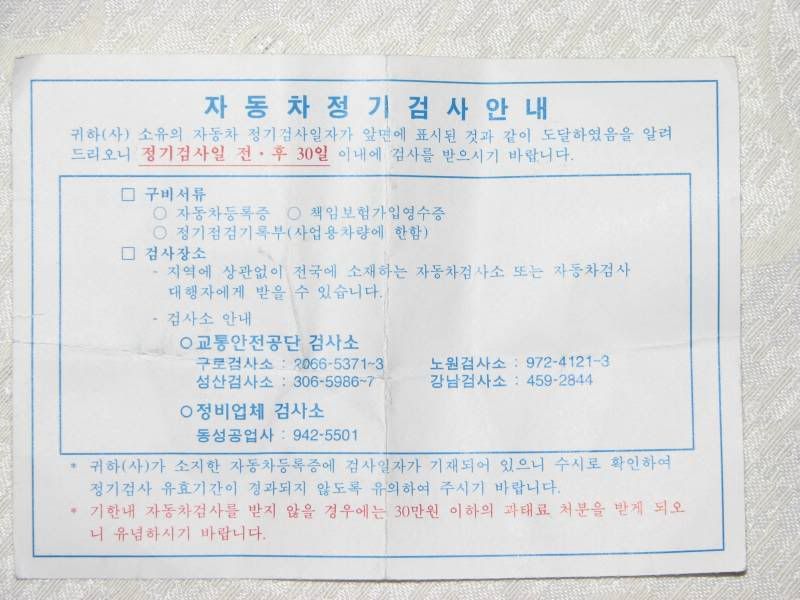 자동차정기검사안내
귀하(사) 소유의 자동차 정기검사일자가 앞면에 표시된 것과 같이 도달하였음을 알려
드리오니 정기검사일 전·후 30일 이내에 검사를 받으시기 바랍니다.
□ 구비서류
○ 자동차등록증 ○ 책임보험가입영수증
○ 정기점검기록부(사업용차량에 한함)
□ 검사장소
- 지역에 상관없이 전국에 소재하는 자동차검사소 또는 자동차검사
대행자에게 받을 수 있습니다.
- 검사소 안내
○교통안전공단 검사소
구로검사소 : 2066-5371~3 노원검사소 : 972-4121~3
성산검사소 : 306-5986~7 강남검사소 : 459-2844
○정비업체 검사소
동성공업사 : 942-5501
* 귀하(사)가 소지한 자동차등록증에 검사일자가 기재되어 있으니 수시로 확인하여
정기검사 유효기간이 경과되지 않도록 유의하여 주시기 바랍니다.
* 기한내 자동차검사를 받지 않을 경우에는 30만원 이하의 과태료 처분을 받게 되오
니 유념하시기 바랍니다.